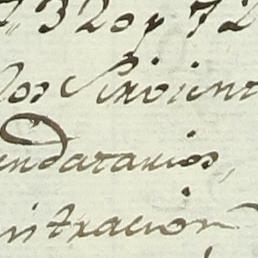 320 y 72
los Sirvient
endatarios,
nistracion